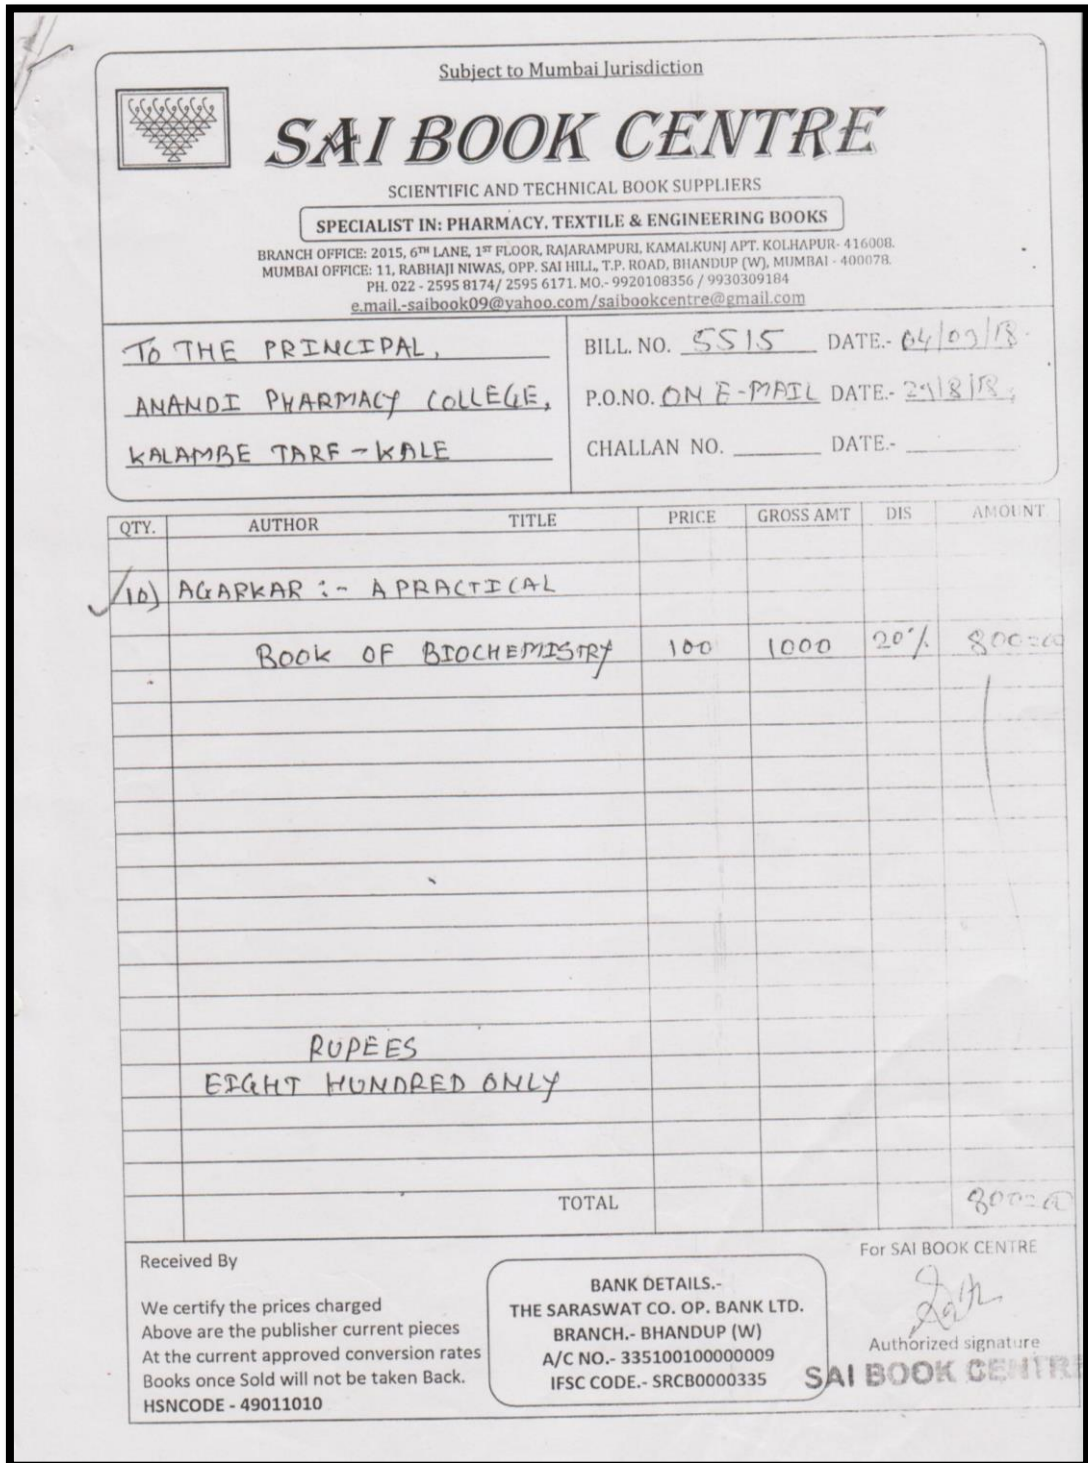 Subject to Mumbai Jurisdiction
SAI BOOK CENTRE
SCIENTIFIC AND TECHNICAL BOOK SUPPLIERS
SPECIALIST IN: PHARMACY. TEXTILE & ENGINEERING BOOKS
BRANCH OFFICE: 2015, 6TH LANE, 1ST FLOOR, RAJARAMPURI, KAMALKUNJ APT. KOLHAPUR- 416008.
MUMBAI OFFICE: 11, RABHAJI NIWAS, OPP. SAI HILL, T.P. ROAD, BHANDUP (W), MUMBAI - 400078.
PH. 022 - 2595 8174/ 2595 6171. MO.- 9920108356 / 9930309184
e.mail.-saibook09@yahoo.com/saibookcentre@gmail.com
TO THE PRINCIPAL,
ANANDI PHARMACY COLLEGE,
KALAMBE TARF - KALE
BILL. NO. 5515 DATE.- 04/09/18
P.O.NO. ON E-MAIL DATE.- 29/8/18
CHALLAN NO. DATE.-
QTY. AUTHOR TITLE PRICE GROSS AMT DIS AMOUNT
10) AGARKAR :- A PRACTICAL
BOOK OF BIOCHEMISTRY 100 1000 20% 800=00
RUPEES
EIGHT HUNDRED ONLY
TOTAL 800=00
Received By
We certify the prices charged
Above are the publisher current pieces
At the current approved conversion rates
Books once Sold will not be taken Back.
HSNCODE - 49011010
BANK DETAILS.-
THE SARASWAT CO. OP. BANK LTD.
BRANCH.- BHANDUP (W)
A/C NO.- 335100100000009
IFSC CODE.- SRCB0000335
For SAI BOOK CENTRE
Authorized signature
SAI BOOK CENTRE